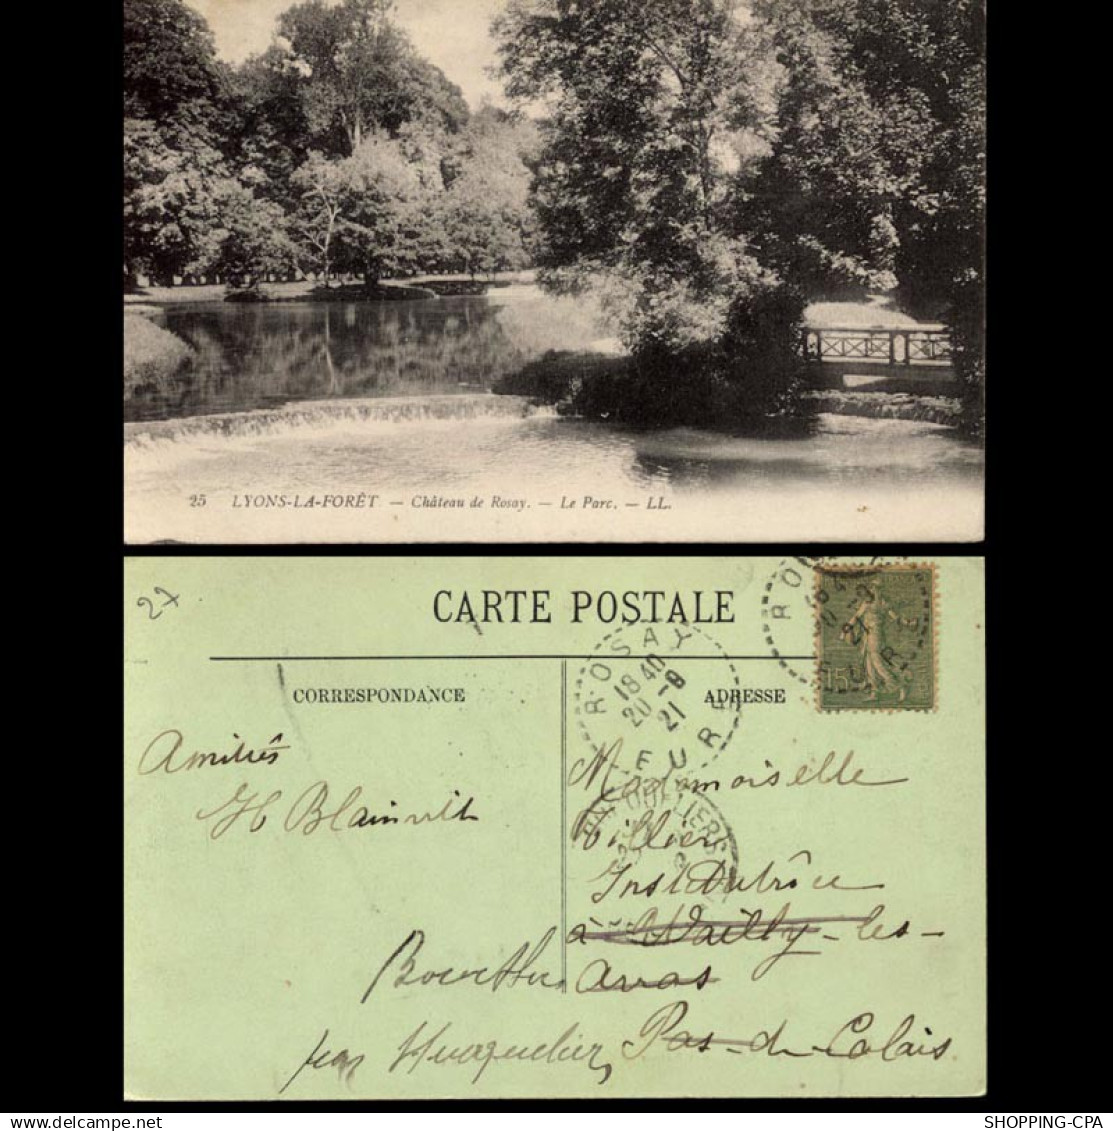 25 LYONS-LA-FORÊT. — Château de Rosay. — Le Parc. — LL.
27
CARTE POSTALE
CORRESPONDANCE
ADRESSE
ROSAY
18 40
20 -9
21
EURE
15
Amitiés
H Blainville
Mademoiselle
Villiers
Institutrice
à Wailly-les-
Arras
Pas-de-Calais
par Hucqueliers
HUCQUELIERS
SHOPPING-CPA